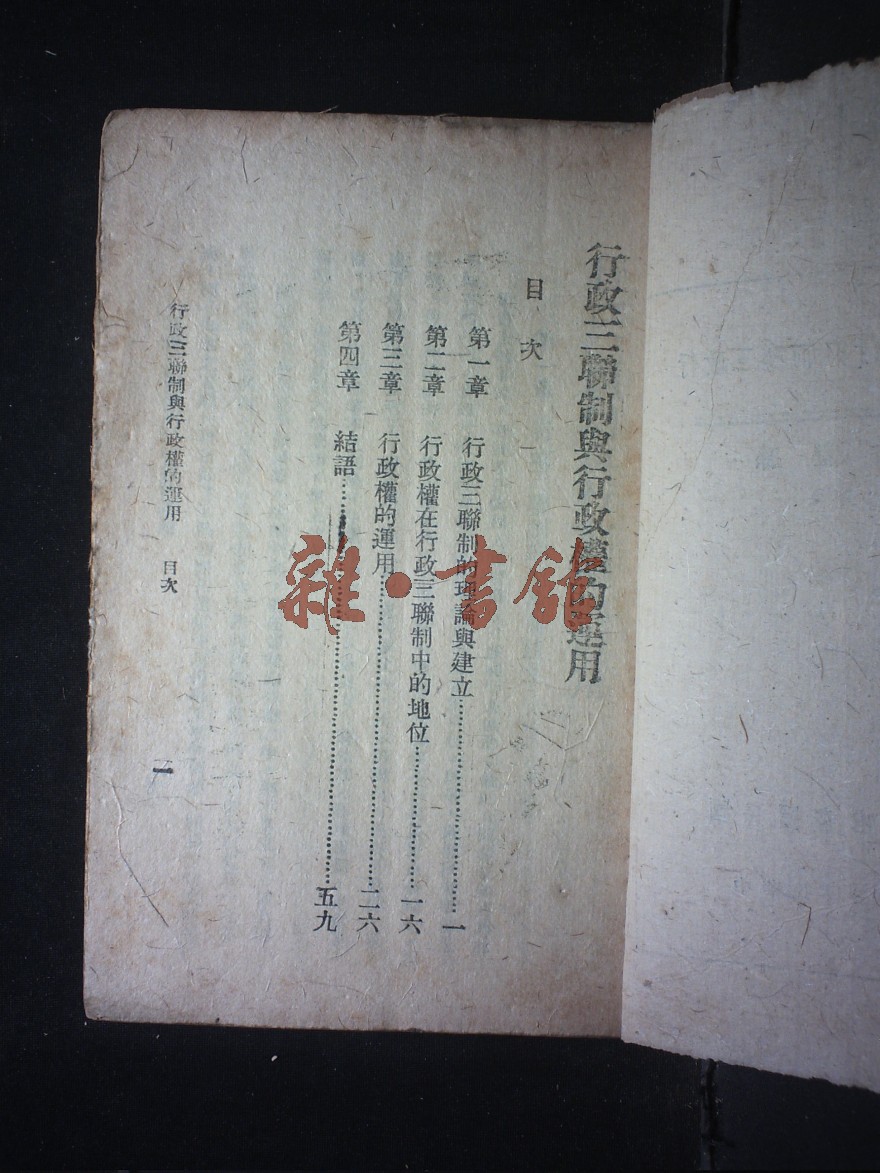 行政三聯制與行政權的運用
目次
第一章 行政三聯制的理論與建立……一
第二章 行政權在行政三聯制中的地位……一六
第三章 行政權的運用……二六
第四章 結語……五九
行政三聯制與行政權的運用 目次 一
雜·書館